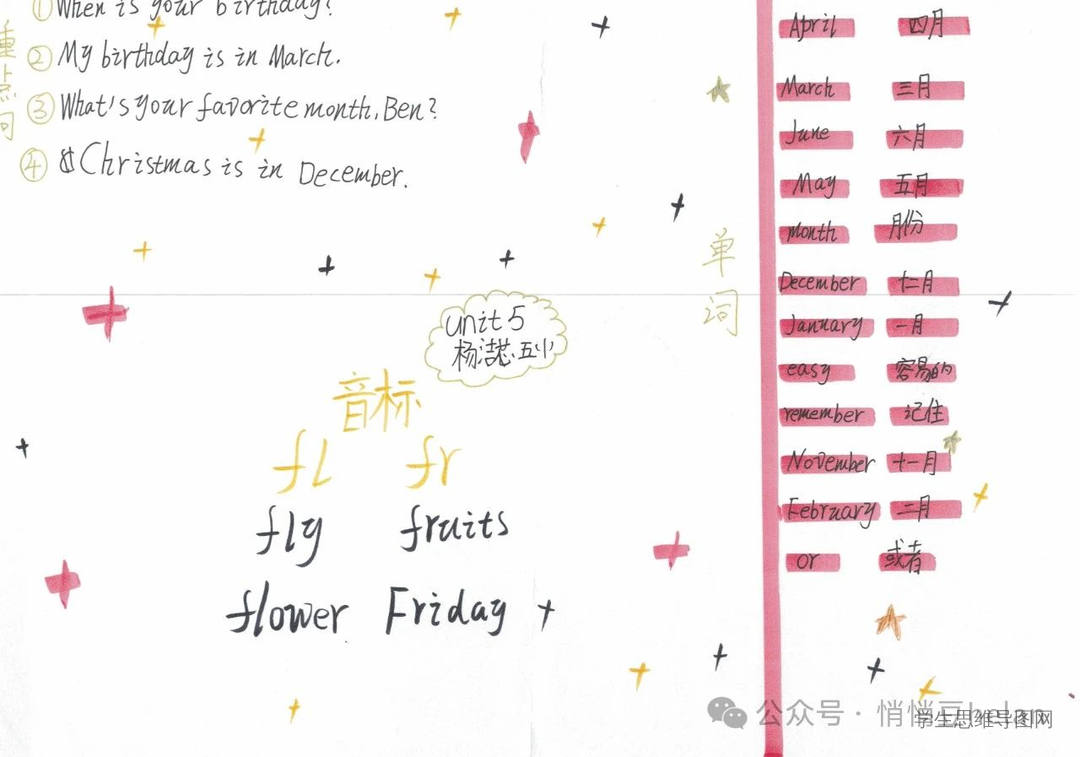 ① When is your birthday?
② My birthday is in March.
③ What's your favorite month, Ben?
④ Christmas is in December.
单词
April 四月
March 三月
June 六月
May 五月
month 月份
December 十二月
January 一月
easy 容易的
remember 记住
November 十一月
February 二月
or 或者
unit 5
音标
fl fr
fly fruits
flower Friday
公众号 · 悄悄
学生思维导图网